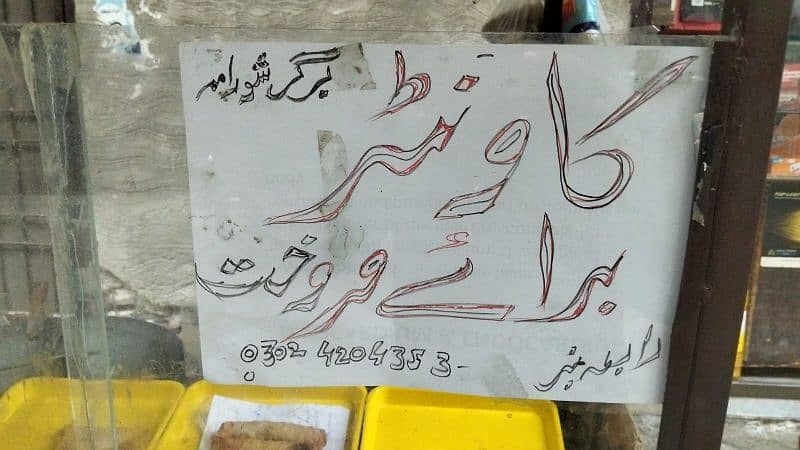 برگر شوارمہ
کاونٹر
برائے فروخت
رابطہ نمبر
0302 4204353